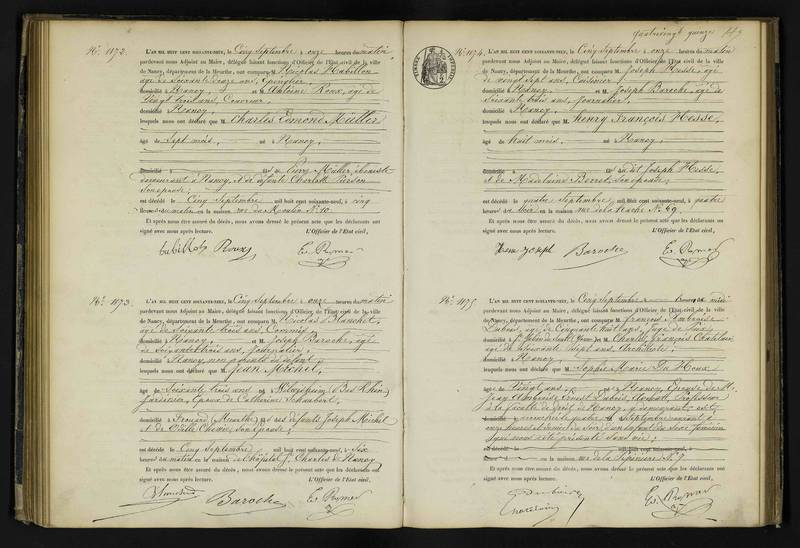 N.° 1172.
L'AN MIL HUIT CENT SOIXANTE-NEUF, le Cinq Septembre à onze heures du matin
pardevant nous Adjoint au Maire, délégué faisant fonctions d'Officier de l'État civil de la ville
de Nancy, département de la Meurthe, ont comparu M. Nicolas Habillon
âgé de Soixante onze ans,
domicilié à Nancy, et M. Antoine Roux, âgé de
Vingt trois ans, Couvreur,
domicilié à Nancy
lesquels nous ont déclaré que M. Charles Edmond Müller
âgé de Sept mois, né à Nancy
Domicilié fils de Pierre Müller, ébéniste
demeurant à Nancy, et de défunte Charlotte
Son épouse;
est décédé le Cinq Septembre mil huit cent soixante-neuf, à cinq
heures du matin en la maison rue du Moulin N.° 10.
Et après nous être assuré du décès, nous avons dressé le présent acte que les déclarants ont
signé avec nous après lecture. L'Officier de l'État civil,
Roux
N.° 1173.
L'AN MIL HUIT CENT SOIXANTE-NEUF, le Cinq Septembre à onze heures du matin
pardevant nous Adjoint au Maire, délégué faisant fonctions d'Officier de l'État civil de la ville
de Nancy, département de la Meurthe, ont comparu M. Nicolas Blanchet,
âgé de Soixante trois ans, Commis,
domicilié à Nancy, et M. Joseph Baroche, âgé
de Soixante trois ans, Journalier,
domicilié à Nancy, non parents du défunt
lesquels nous ont déclaré que M. Jean Michel,
âgé de Soixante trois ans né à (Bas Rhin)
Jardinier, Époux de Catherine Schaubert,
domicilié à (Meurthe) fils des défunts Joseph Michel
et de Odile son épouse,
est décédé le Cinq Septembre mil huit cent soixante-neuf, à Six
heures du matin en la maison hôpital S.t Charles de Nancy
Et après nous être assuré du décès, nous avons dressé le présent acte que les déclarants ont
signé avec nous après lecture. L'Officier de l'État civil,
Baroche
quatrevingt quinze
N.° 1174.
L'AN MIL HUIT CENT SOIXANTE-NEUF, le Cinq Septembre à onze heures du matin
pardevant nous Adjoint au Maire, délégué faisant fonctions d'Officier de l'État civil de la ville
de Nancy, département de la Meurthe, ont comparu M. Joseph Hesse, âgé
de vingt sept ans,
domicilié à Nancy, et M. Joseph Baroche, âgé de
Soixante trois ans, Journalier,
domicilié à Nancy
lesquels nous ont déclaré que M. Henry François Hesse,
âgé de huit mois, né à Nancy,
domicilié fils du dit Joseph Hesse,
et de Madelaine Son épouse;
est décédé le quatre Septembre mil huit cent soixante-neuf, à quatre
heures du soir en la maison rue de la Hache N.° 69.
Et après nous être assuré du décès, nous avons dressé le présent acte que les déclarants ont
signé avec nous après lecture. L'Officier de l'État civil,
Joseph Baroche
N.° 1175
L'AN MIL HUIT CENT SOIXANTE-NEUF, le Cinq Septembre à midi
pardevant nous Adjoint au Maire, délégué faisant fonctions d'Officier de l'État civil de la ville
de Nancy, département de la Meurthe, ont comparu M. François Ambroise
Dubois, âgé de Cinquante huit ans, Juge de Paix,
domicilié à et M. Charles François Chatelain
âgé de Soixante Sept ans, Architecte,
domicilié à Nancy,
lesquels nous ont déclaré que M. Sophie Marie
âgée de Vingt ans, née à Nancy, Épouse de M.
Jean Ambroise Ernest Dubois, Professeur
à la faculté de droit de Nancy, y demeurant est
domicilié à accouchée quatre Septembre courant à
onze heures et demie du Soir d'un Enfant du Sexe féminin
qui nous a été présenté sans vie;
est décédé le mil huit cent soixante-neuf, à
en la maison rue de la Pépinière N.° 9
Et après nous être assuré du décès, nous avons dressé le présent acte que les déclarants ont
signé avec nous après lecture. L'Officier de l'État civil,
Chatelain